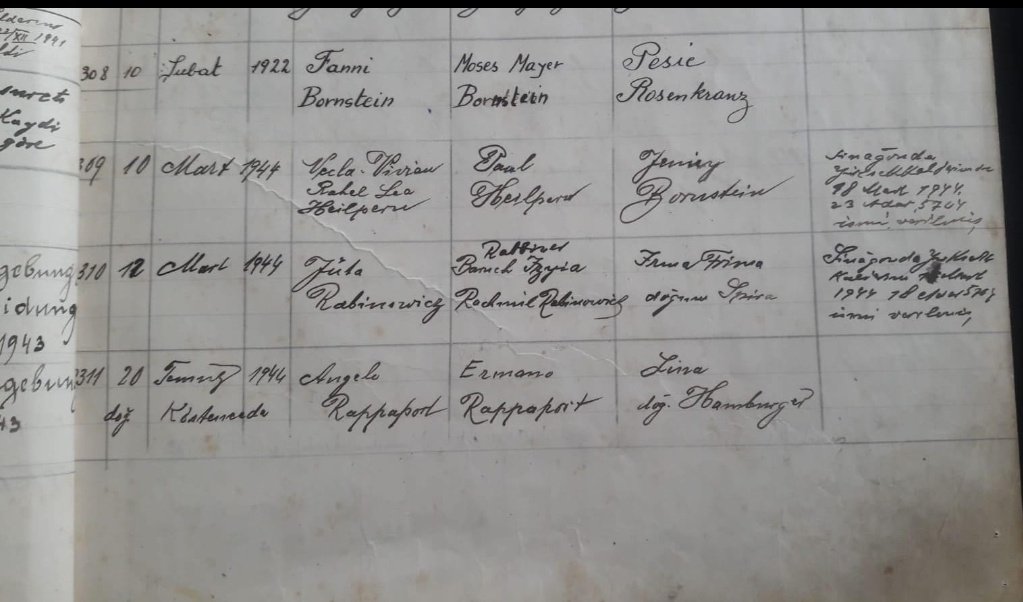 1941
308 10 Şubat 1922 Fanni Moses Mayer Pesie
Bornstein Bornstein Rosenkranz
Kaydi
göre
309 10 Mart 1944 Vivian Paul Jenny
Rahel Lea Heilpern Bornstein
Heilpern
18 Mart 1944
23 Adar 5704
ismi verilmiş
gebung 310 12 Mart 1944 Rabbiner
Jüta Baruch Irma Sinagonda
idung Rabinowicz Rachmil Rabinowicz doğumu Spira
1944 18 Adar 5704
1943 ismi verilmiş
gebung 311 20 Temuz 1944 Angelo Ermano Lina
43 doğ. Köstencede Rappaport Rappaport doğ. Hamburger